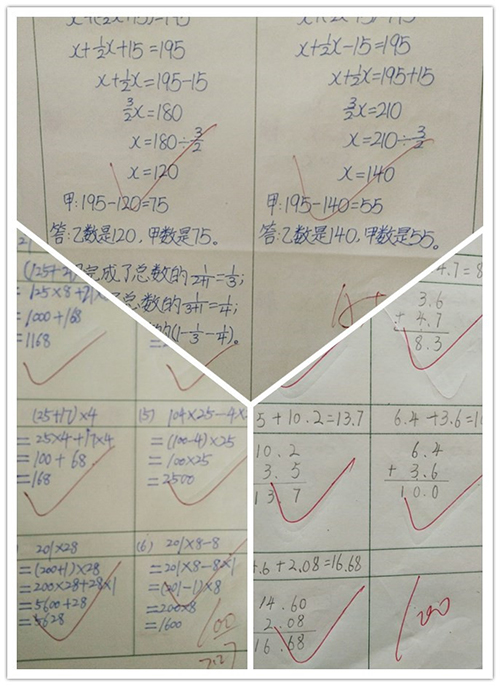 x+½x+15=195
x+½x=195-15
3/2x=180
x=180÷3/2
x=120
甲:195-120=75
答:乙数是120,甲数是75。
x+½x-15=195
x+½x=195+15
3/2x=210
x=210÷3/2
x=140
甲:195-140=55
答:乙数是140,甲数是55。
完成了总数的1/2+1=1/3;
了总数的1/3+1=1/4;
的(1-1/3-1/4)。
=125×8+
=1000+168
=1168
(25+17)×4
=25×4+17×4
=100+68
=168
(5) 104×25-4×
=(100-4)×25
=100×25
=2500
201×28
=(200+1)×28
=200×28+28×1
=5600+28
=5628
(6) 201×8-8
=201×8-8×1
=(201-1)×8
=200×8
=1600
100
7.27
4.7=8
3.6
+ 4.7
8.3
5+10.2=13.7
10.2
3.5
13 7
6.4+3.6=10
6.4
+ 3.6
10.0
.6+2.08=16.68
14.60
2.08
16.68
100